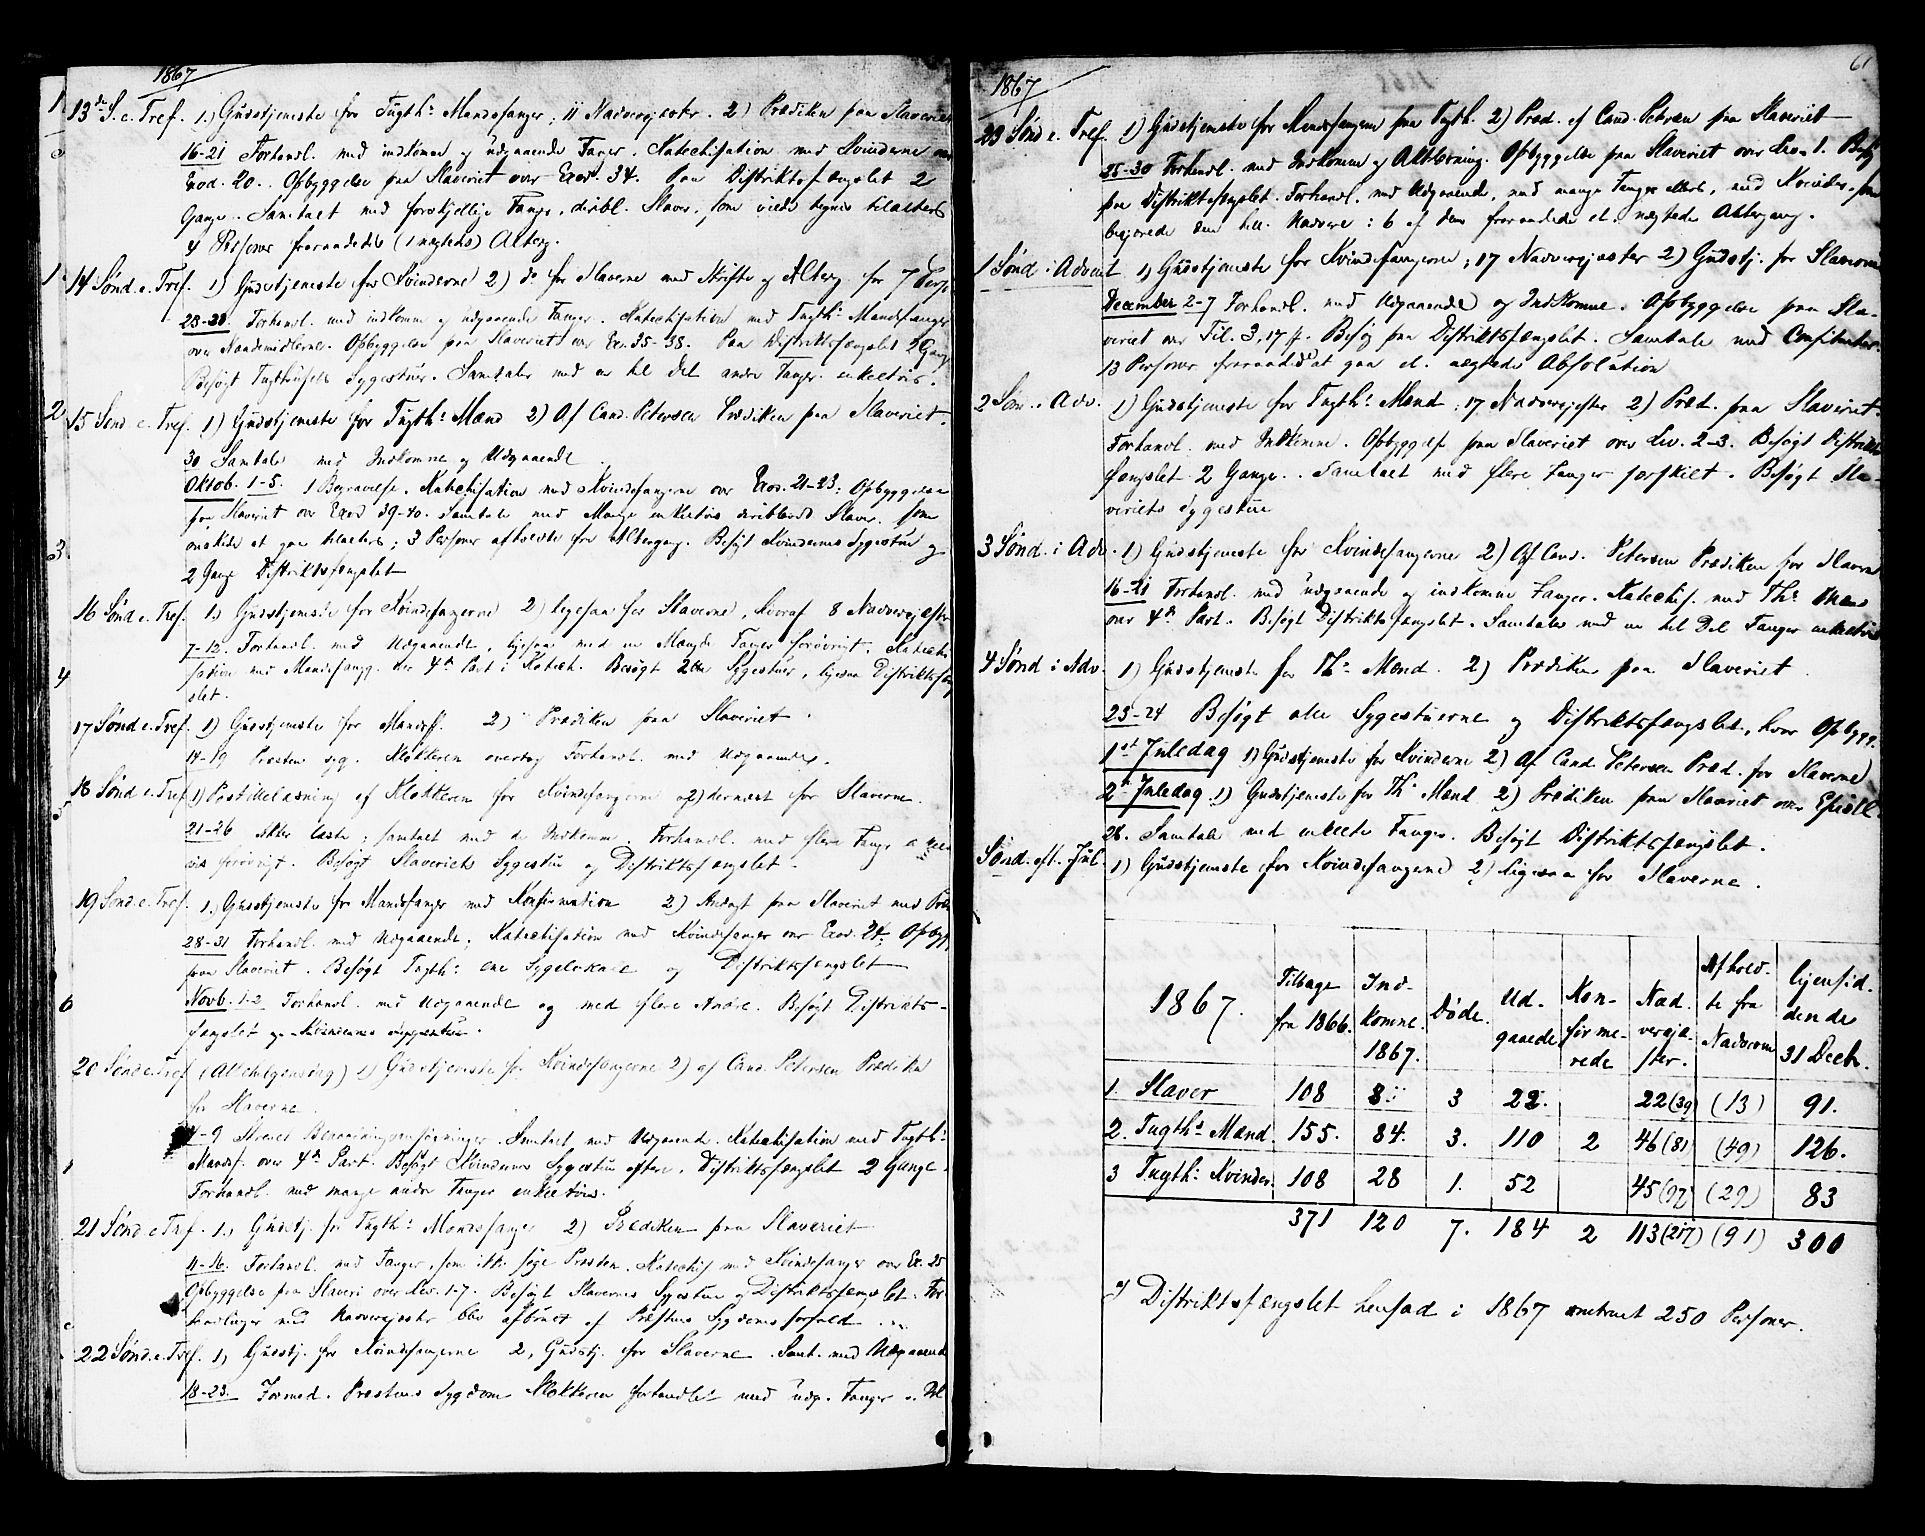 1867
13de S. e. Tref. 1.) Gudstjeneste for Tugth: Mandsfanger; 11 Nadvergjæster. 2) Prædiken paa Slaveriet
16-21 Forhandl. med indkomne og udgaaende Fanger. Katechisation med Kvinderne over
Exod. 20. Opbyggelse paa Slaveriet over Exod. 34. Paa Distriktsfængslet 2
Gange. Samtalt med forskjellige Fanger, deribl. Slaver, som tilalters
4 Personer fraraadedes (1 nægtedes) Alterg.
14 Sønd. e. Tref. 1) Gudstjeneste for Kvinderne 2) do for Slaverne med Skrifte og Alterg. for 7
23-28 Forhandl. med indkomne og udgaaende Fanger. Katechisation med Tugth: Mandsfanger
over Naademidlerne. Opbyggelse paa Slaveriet over Ex. 35-38. Paa Distriktsfængslet 2 Gange
Besøgt Tugthusets Sygestuer. Samtaler med en hel Del andre Fanger enkeltvis.
15 Sønd e. Tref. 1) Gudstjeneste for Tugth: Mænd 2) Af Cand. Petersen Prædiken paa Slaveriet.
30 Samtale med Indkomne og Udgaaende
Oktob. 1-5. 1 Begravelse. Katechisation med Kvindefangerne over Exod. 21-23; Opbyggelse
paa Slaveriet over Exod 39-40. Samtale med Mange enkeltvis deriblandt Slaver, som
ønskede at gaa tilalters; 3 Personer afholdtes fra Altergang. Besøgt Kvindernes Sygestue og
2 Gange Distriktsfængslet
16 Sønd e. Tref. 1.) Gudstjeneste for Kvindefangerne 2) ligesaa for Slaverne, hvoraf 8 Nadvergjester
7-12. Forhandl. med Udgaaende, ligesaa med en Mængde Fanger forøvrigt. Kateche
sation med Mandsfang. over 4de Part i Katech. Besøgt 2de Sygestuer, ligesaa Distriktsfæng
slet.
17 Sønd e. Tref. 1) Gudstjeneste for Mandsf. 2) Prædiken paa Slaveriet.
14-19 Præsten syg. Klokkeren overtog Forhandl. med Udgaaende.
18 Sønd e. Tref 1) Postillelæsning af Klokkeren for Kvindefangerne og 2) dernæst for Slaverne.
21-26 samtalt med de Indkomne, Forhandl. med flere Fanger enkelt
vis forøvrigt. Besøgt Slaveriets Sygestue og Distriktsfængslet.
19 Sønd e. Tref. 1.) Gudstjeneste for Mandsfanger med Konfirmation 2) Andagt paa Slaveriet med
28-31 Forhandl. med Udgaaende; Katechisation med Kvindefanger over Exod. 24; Opbygg.
paa Slaveriet. Besøgt Tugth: ene Sygelokale og Distriktsfængslet
Novb. 1-2 Forhandl. med Udgaaende og med flere Andre. Besøgt Distrikts-
fængslet og Kvindernes Sygestue.
20 Sønd e. Tref (Allehelgensdag) 1) Gudstjeneste for Kvindefangerne 2) af Cand. Petersen Prædiken
for Slaverne.
4-9 Samtalt med Udgaaende. Katechisation med Tugth:
Mandsf. over 4de Part. Besøgt Kvindernes Sygestue oftere, Distriktsfængslet 2 Gange.
Forhandl. med mange andre Fanger enkeltvis.
21 Sønd e Tref. 1., Gudstj. for Tugth: Mandsfanger 2) Prædiken paa Slaveriet
11-16. Forhandl. med Fanger, som ikke søge Præsten. Katechis. med Kvindefanger over Ex. 25
Opbyggelse paa Slaveri over Lev. 1-7. Besøgt Slavernes Sygestue og Distriktsfængslet. For
handlinger med Nadvergjester blev afbrudt af Præstens Sygdomsforfald.
22 Sønd. e. Tref. 1, Gudstj. for Kvindefangerne 2, Gudstj. for Slaverne. Samt. med Udgaaende
18-23. Formed. Præstens Sygdom Klokkeren forhandlet med udg. Fanger
61
1867
23 Sønd e. Tref. 1) Gudstjeneste for Mandsfangerne paa Tugth. 2) Præd. af Cand. Petersen paa Slaveriet
25-30 Forhandl. med Indkomne og Afløsning. Opbyggelse paa Slaveriet over Lev. 1. Besøg
paa Distriktsfængslet. Forhandl. med Udgaaende, med mange Fanger ellers, med Kvinder, som
begjerede den hell. Nadvere: 6 af dem fraraadede el. nægtede Altergang.
1 Sønd i Advent 1) Gudstjeneste for Kvindefangerne; 17 Nadvergjæster 2) Gudstj. for Slaverne
December 2-7 Forhandl. med Udgaaende og Indkomne. Opbyggelse paa Sla-
veriet over Til. 3,17 ff. Besøg paa Distriktsfængslet. Samtale med Confitenter.
13 Personer fraraadedes at gaa el. nægtede Absolution
2 Søn. i Adv. 1) Gudstjeneste for Tugth: Mænd; 17 Nadvergjester 2) Præd. paa Slaveriet.
Forhandl. med Indkomne. Opbyggelse paa Slaveriet over Lev. 2-3. Besøgt Distrikts
fængslet 2 Gange. Samtalt med flere Fanger forskjelt. Besøgt Sla-
veriets Sygestue
3 Sønd. i Adv. 1) Gudstjeneste for Kvindefangerne 2) Af Cand. Petersen Prædiken for Slaverne
16-21 Forhandl. med udgaaende og indkomne Fanger. Katechis. med Th: Mænd
over 4de Part. Besøgt Distriktsfængslet. Samtaler med en hel Del Fanger enkeltvis
4 Sønd i Adv. 1) Gudstjeneste for Th: Mænd. 2) Prædiken paa Slaveriet.
23-24 Besøgt alle Sygestuerne og Distriktsfængslet, hvor Opbygg.
1st Juledag 1) Gudstjeneste for Kvinderne 2) Af Cand. Petersen Præd. for Slaverne
2d Juledag 1) Gudstjeneste for Th: Mænd 2) Prædiken paa Slaveriet over Epistl.
28. Samtale med enkelte Fanger. Besøgt Distriktsfængslet.
Sønd. eft. Jul. 1) Gudstjeneste for Kvindefangerne 2) ligesaa for Slaverne.
1867. Tilbage fra 1866. Ind-komne 1867. Døde. Ud-gaaede Kon-firme-rede Nad-vergjæ-ster. Afhold-te fra Nadveren ligensid-dende 31 Decbr.
1. Slaver 108 8 3 22. 22 (39) (13) 91.
2. Tugths Mænd. 155. 84. 3. 110 2 46 (81) (49) 126.
3 Tugth: Kvinder. 108 28 1. 52 45 (97) (29) 83
371 120 7. 184 2 113 (217) (91) 300
Distriktsfængslet hensad i 1867 omtrent 250 Personer.